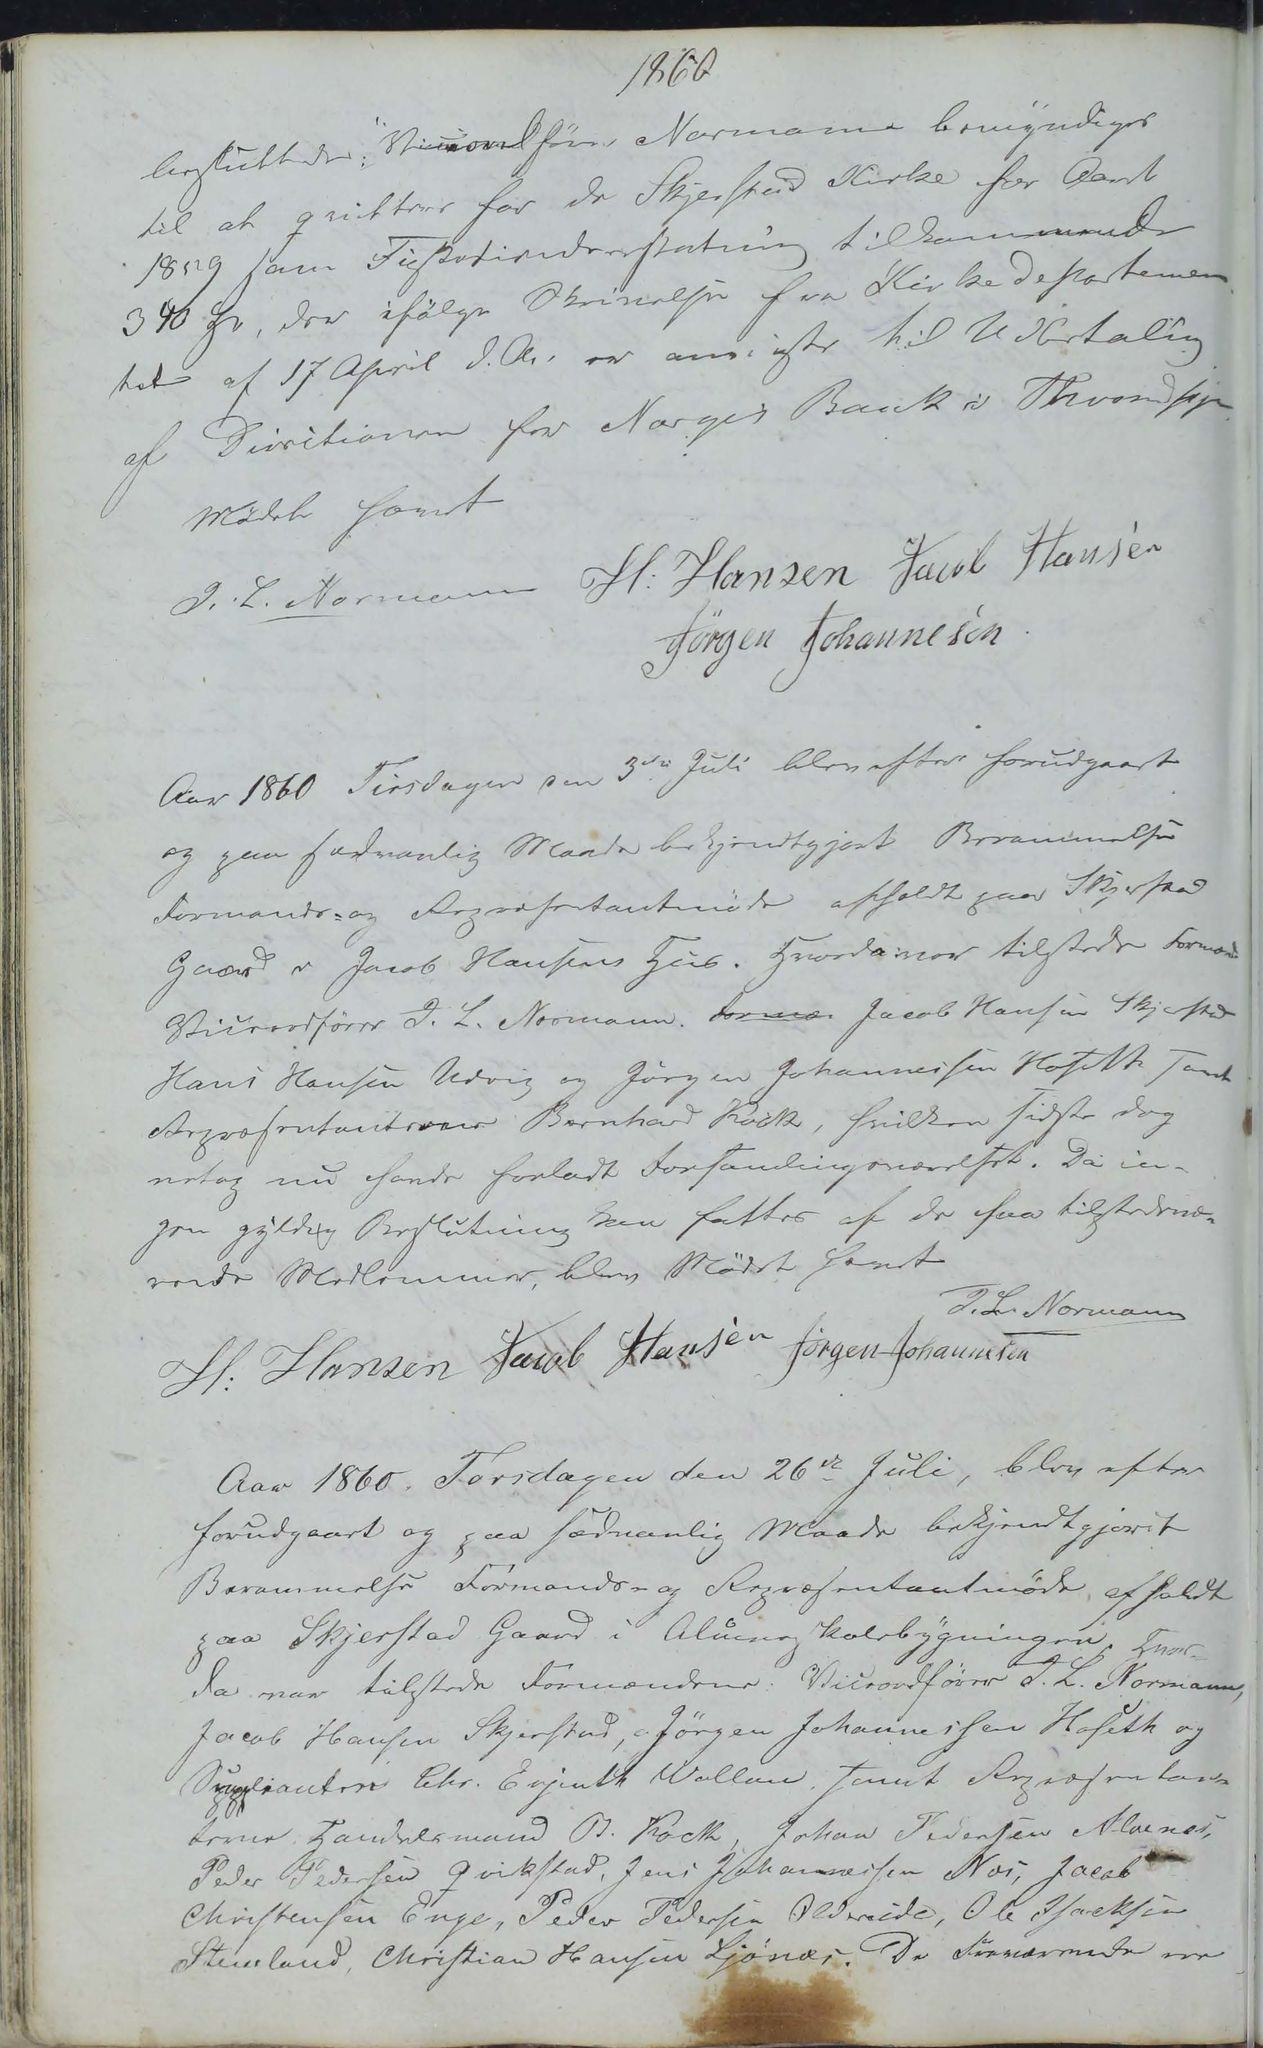 1860
besluttede: "Viceordfører Normann bemyndiges
til at qvittere for de Skjerstad Kirke for Aaret
1859 som Fisketiendeerstatning tilkommende
340 , der ifølge Skrivelse fra Kirkedepartemen
tet af 17 April d.A. er anviist til Udbetaling
af Directionen for Norges Bank i Throndhjem
Mødet hævet
J. L. Normann H: Hansen Jacob Hansen
Jörgen Johannesen
Aar 1860 Tirsdagen den 3die Juli blev efter forudgaaet
og paa sædvanlig Maade bekjendtgjort Berammelse
Formands- og Repræsentantmøde afholdt paa Skjerstad
Gaard i Jacob Hansens Huus. Hvorda var tilstede Formænd
Viceordfører J. L. Normann. Jacob Hansen Skjerstad
Hans Hansen Udvig og Jörgen Johannessen Hoseth samt
Repræsentanterne Bernhard Koch, hvilken sidste dog
netop nu havde forladt Forsamlingsværelset. Da in-
gen gyldig Beslutning kan fattes af de faa tilstedevæ-
rende Medlemmer, blev Mødet hævet
J. L. Normann
H: Hansen Jacob Hansen Jörgen Johannesen
Aar 1860. Torsdagen den 26de Juli, blev efter
forudgaaet og paa sædvanlig Maade bekjendtgjort
Berammelse Formands- og Repræsentantmøde afholdt
paa Skjerstad Gaard i Almueskolebygningen. Hvor-
da var tilstede Formændene: Viceordfører J. L. Normann,
Jacob Hansen Skjerstad, Jörgen Johannessen Hoseth og
Suppleanten Chr. Evjenth Vollan, samt Repræsentan-
terne Handelsmand B. Koch, Johan Pedersen Alvenes,
Peder Pedersen Qvikstad, Jens Johannessen Næs, Jacob
Christensen Enge, Peder Pedersen Oldereide, Ole Isacksen
Steinland, Christian Hansen Ljönæs. De Fraværende ere